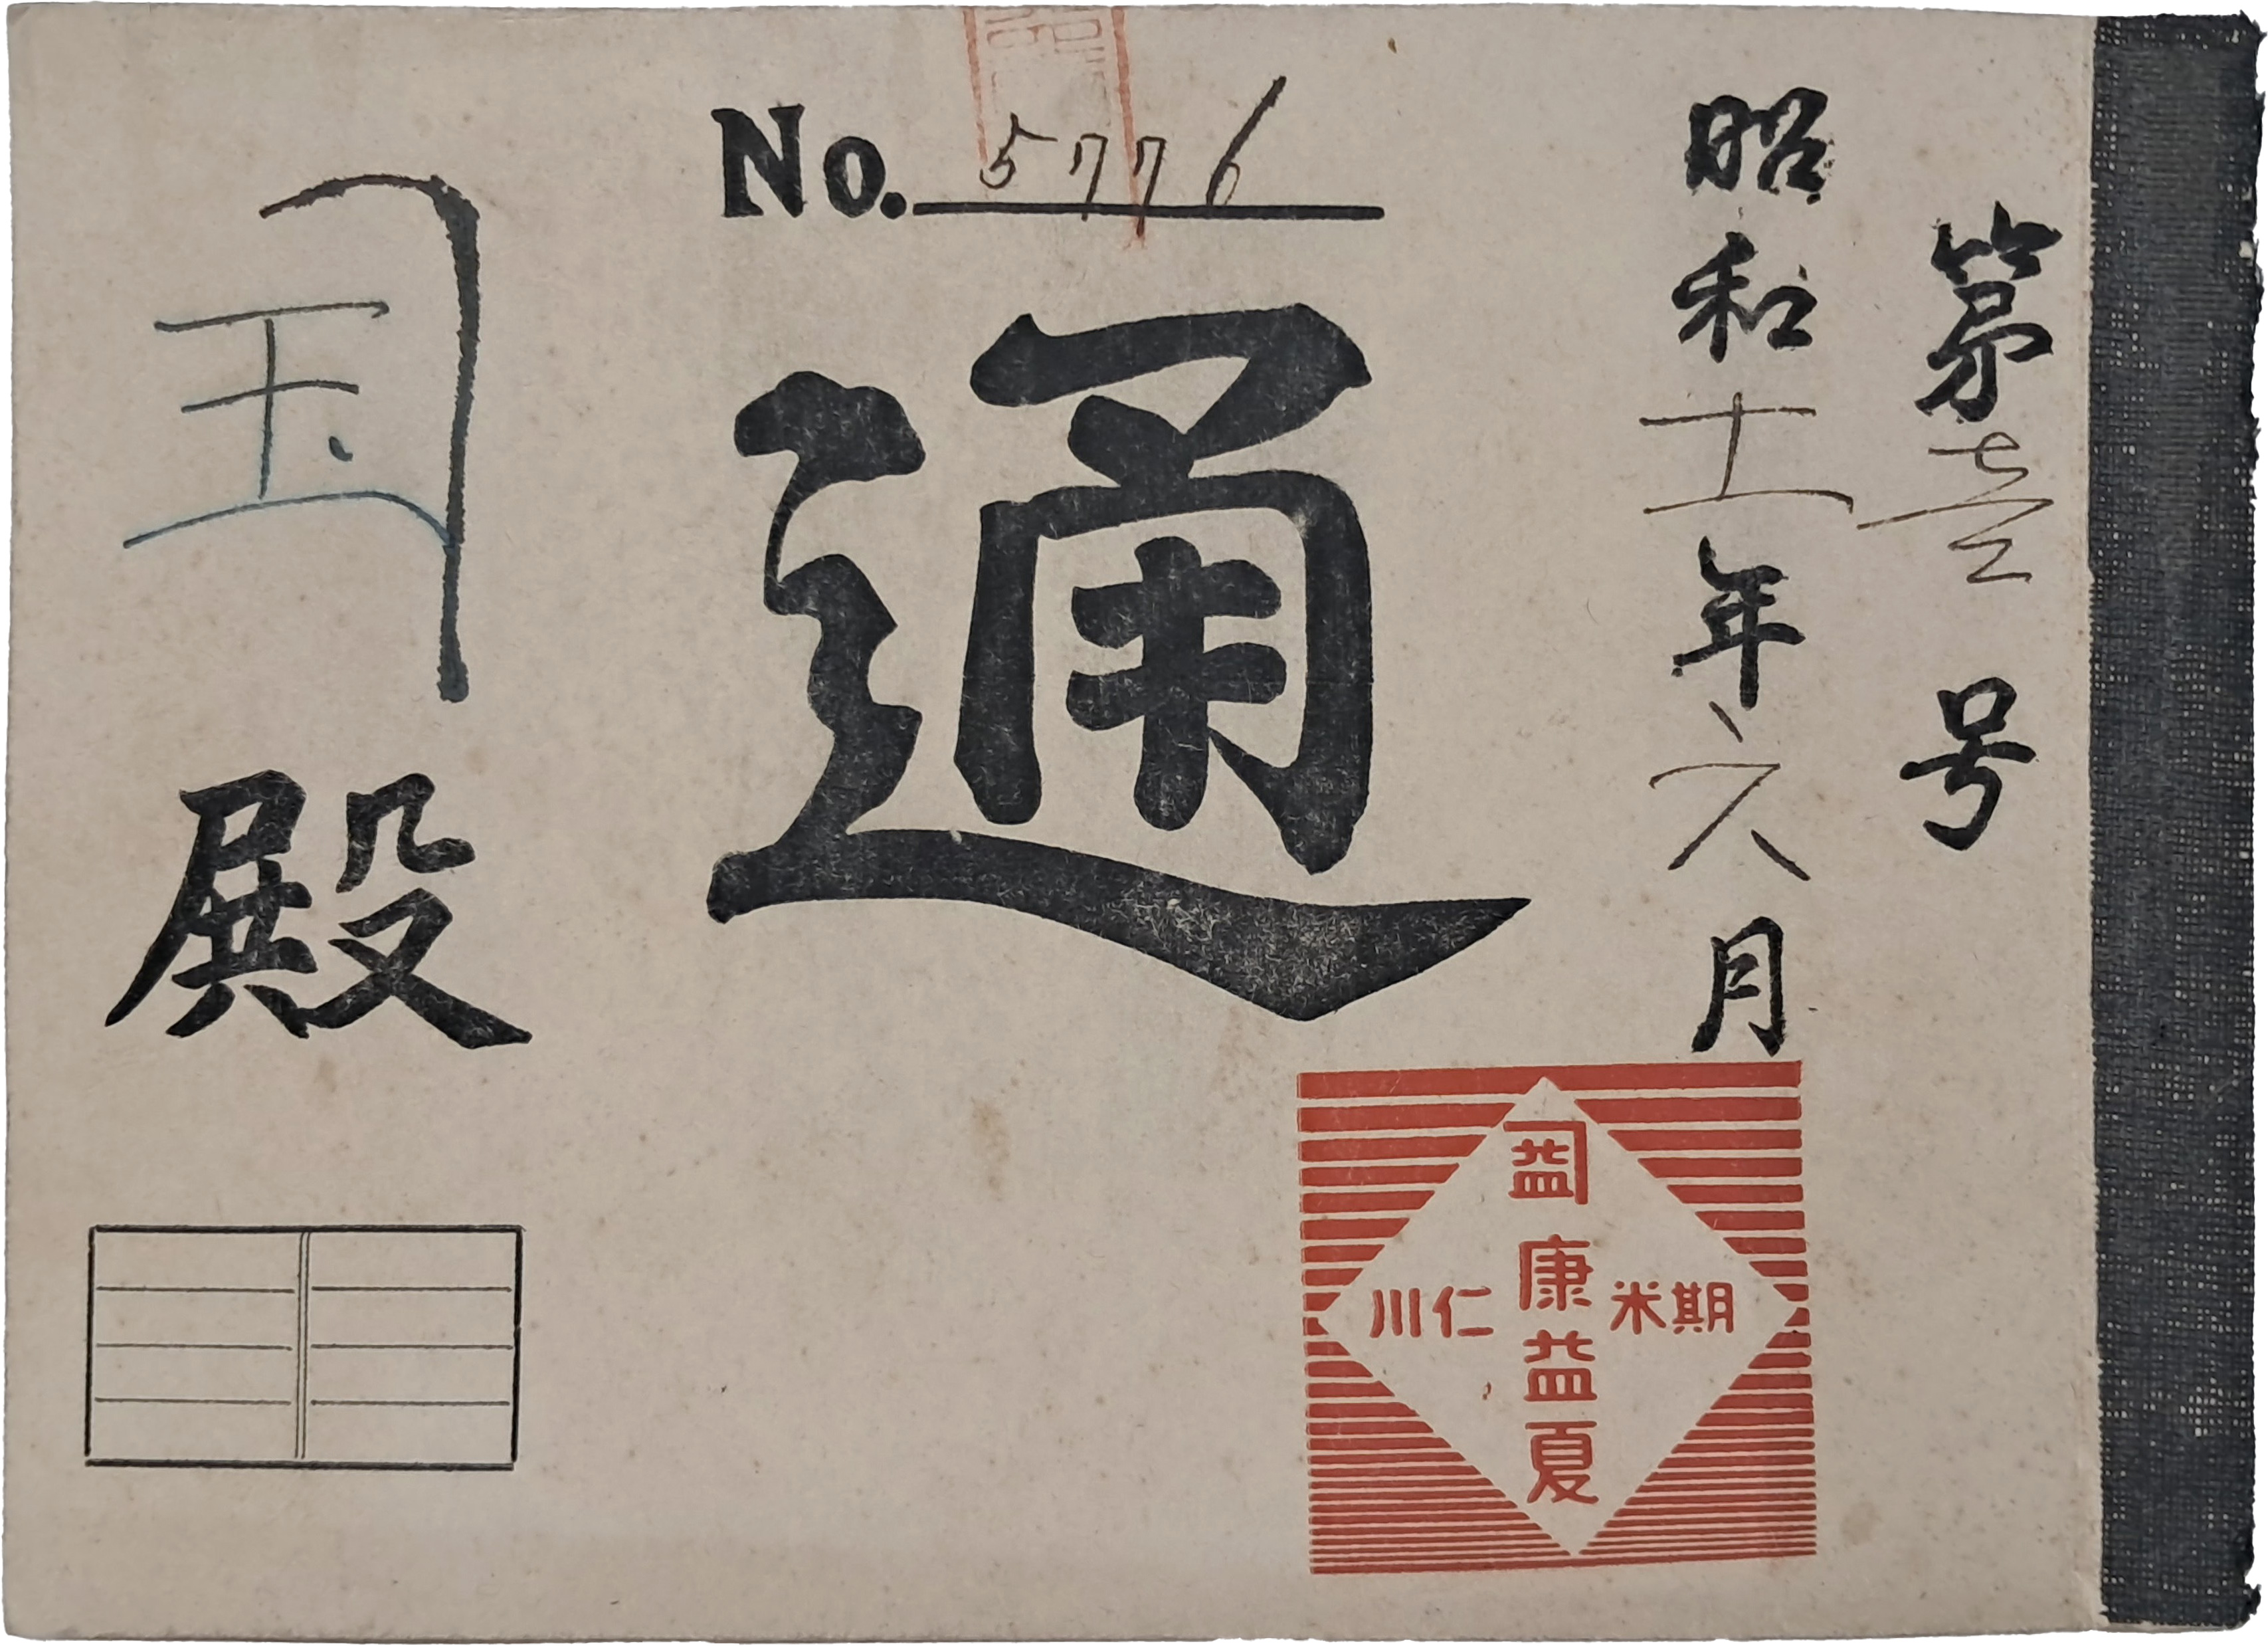 第壹号
昭和十一年六月
No. 5776
通
玉
殿
益
康益夏
期米
仁川